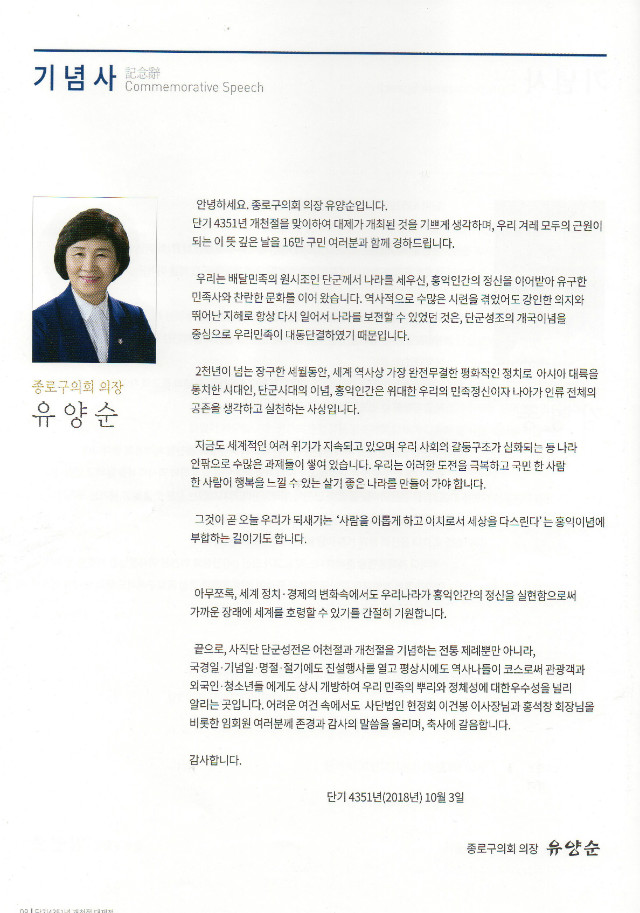 기념사 記念辭
Commemorative Speech
안녕하세요. 종로구의회 의장 유양순입니다.
단기 4351년 개천절을 맞이하여 대제가 개최된 것을 기쁘게 생각하며, 우리 겨레 모두의 근원이
되는 이 뜻 깊은 날을 16만 구민 여러분과 함께 경하드립니다.
우리는 배달민족의 원시조인 단군께서 나라를 세우신, 홍익인간의 정신을 이어받아 유구한
민족사와 찬란한 문화를 이어 왔습니다. 역사적으로 수많은 시련을 겪었어도 강인한 의지와
뛰어난 지혜로 항상 다시 일어서 나라를 보전할 수 있었던 것은, 단군성조의 개국이념을
중심으로 우리민족이 대동단결하였기 때문입니다.
2천년이 넘는 장구한 세월동안, 세계 역사상 가장 완전무결한 평화적인 정치로 아시아 대륙을
통치한 시대인, 단군시대의 이념, 홍익인간은 위대한 우리의 민족정신이자 나아가 인류 전체의
공존을 생각하고 실천하는 사상입니다.
지금도 세계적인 여러 위기가 지속되고 있으며 우리 사회의 갈등구조가 심화되는 등 나라
안팎으로 수많은 과제들이 쌓여 있습니다. 우리는 이러한 도전을 극복하고 국민 한 사람
한 사람이 행복을 느낄 수 있는 살기 좋은 나라를 만들어 가야 합니다.
그것이 곧 오늘 우리가 되새기는 ‘사람을 이롭게 하고 이치로서 세상을 다스린다’는 홍익이념에
부합하는 길이기도 합니다.
아무쪼록, 세계 정치·경제의 변화속에서도 우리나라가 홍익인간의 정신을 실현함으로써
가까운 장래에 세계를 호령할 수 있기를 간절히 기원합니다.
끝으로, 사직단 단군성전은 어천절과 개천절을 기념하는 전통 제례뿐만 아니라,
국경일·기념일·명절·절기에도 진설행사를 열고 평상시에도 역사나들이 코스로써 관광객과
외국인·청소년들 에게도 상시 개방하여 우리 민족의 뿌리와 정체성에 대한우수성을 널리
알리는 곳입니다. 어려운 여건 속에서도 사단법인 현정회 이건봉 이사장님과 홍석창 회장님을
비롯한 임회원 여러분께 존경과 감사의 말씀을 올리며, 축사에 갈음합니다.
감사합니다.
단기 4351년(2018년) 10월 3일
종로구의회 의장 유양순
종로구의회 의장
유양순